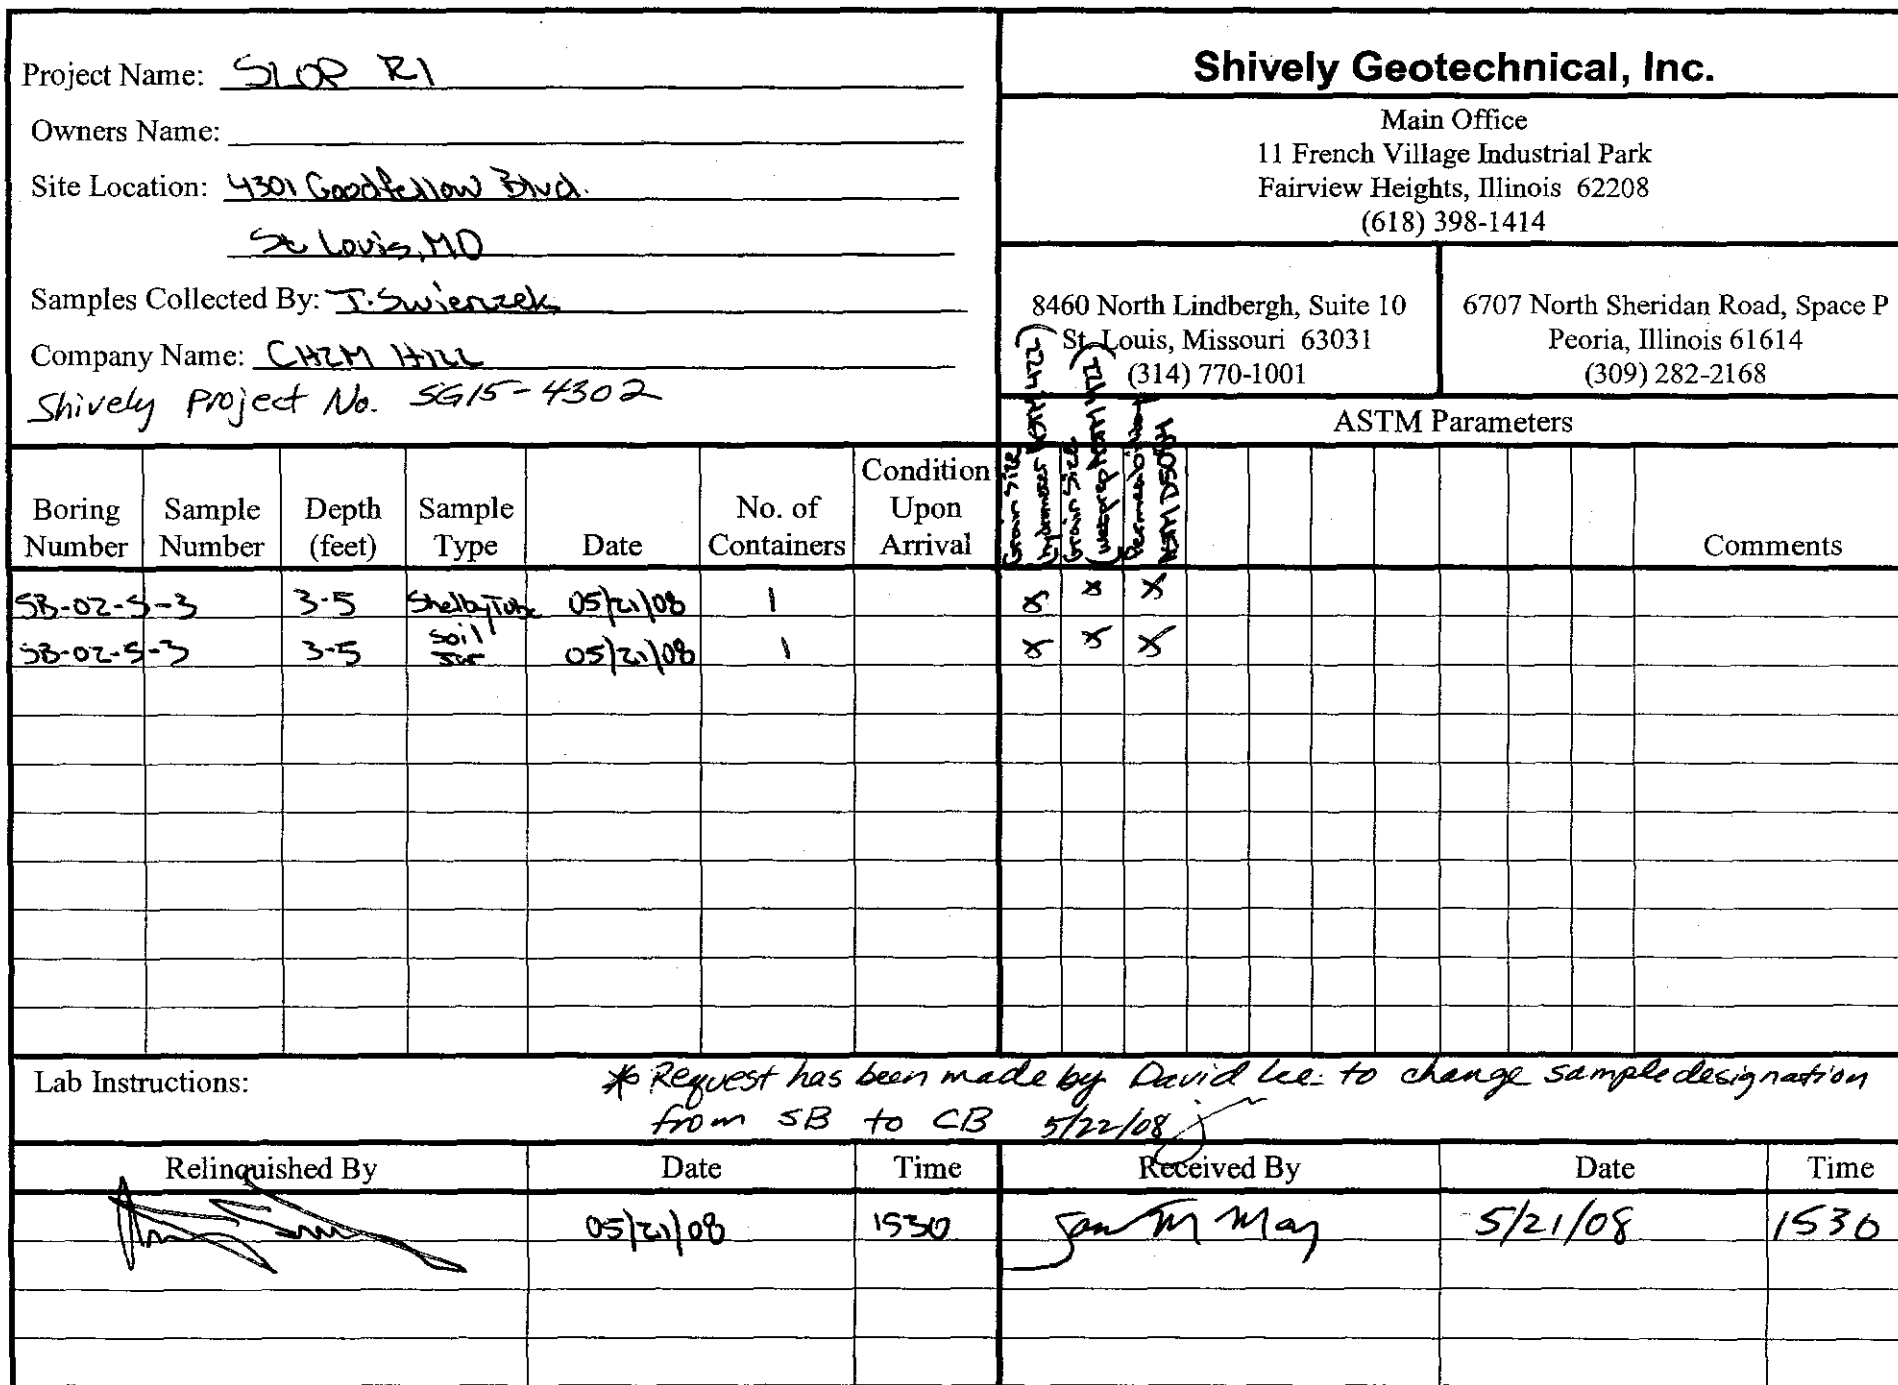 Project Name: SLOP RI
Owners Name:
Site Location: 4301 Goodfellow Blvd.
St Louis, MO
Samples Collected By: J. Swierczek
Company Name: CH2M HILL
Shively Project No. SG15-4302
Shively Geotechnical, Inc.
Main Office
11 French Village Industrial Park
Fairview Heights, Illinois 62208
(618) 398-1414
8460 North Lindbergh, Suite 10
St. Louis, Missouri 63031
(314) 770-1001
6707 North Sheridan Road, Space P
Peoria, Illinois 61614
(309) 282-2168
ASTM Parameters
Boring Number
Sample Number
Depth (feet)
Sample Type
Date
No. of Containers
Condition Upon Arrival
Grain Size
(hydrometer ASTM 422)
Grain Size
(wet prep ASTM 1122)
Permeability
ASTM D5084
Comments
SB-02-S-3 3-5 Shelby Tube 05/21/08 1 X X X
SB-02-S-3 3-5 Soil Jar 05/21/08 1 X X X
Lab Instructions:
* Request has been made by David Lee to change sample designation
from SB to CB 5/22/08
Relinquished By Date Time Received By Date Time
05/21/08 1530 May 5/21/08 1530